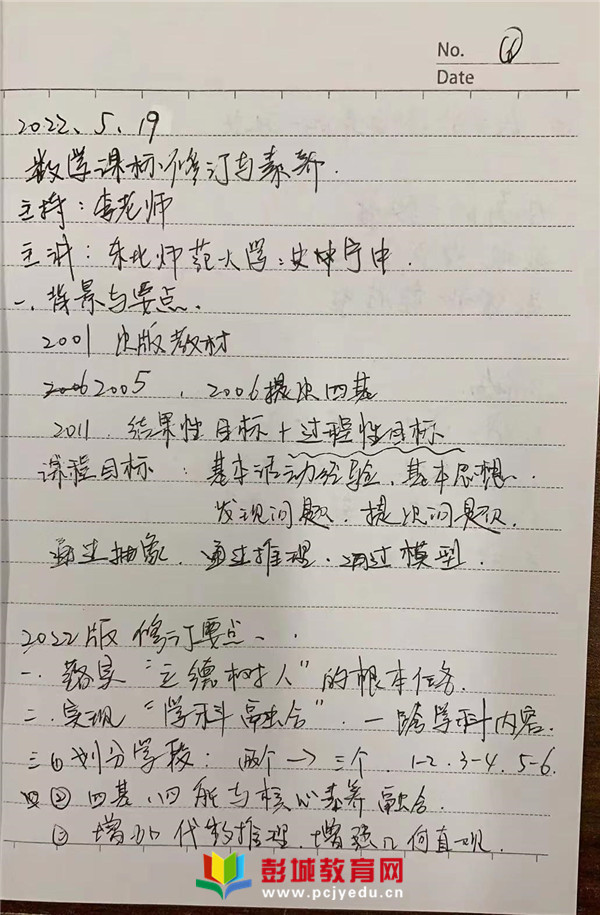 No. ⑥
Date
2022、5、19
数学课标修订与素养.
主持：李老师
主讲：东北师范大学：史宁中.
一、背景与要点、
2001 出版教材
2006 2005 、2006提出四基
2011 结果性目标+过程性目标
课程目标：基本活动经验、基本思想、
发现问题、提出问题.
通过抽象、通过推理、通过模型.
2022版 修订要点、
一、落实“立德树人”的根本任务.
二、实现“学科融合”.一跨学科内容.
三①划分学段：两个→三个.1-2.3-4.5-6.
四②四基、四能与核心素养融合.
③增加代数推理、增强几何直观.
彭城教育网
www.pcjyedu.cn